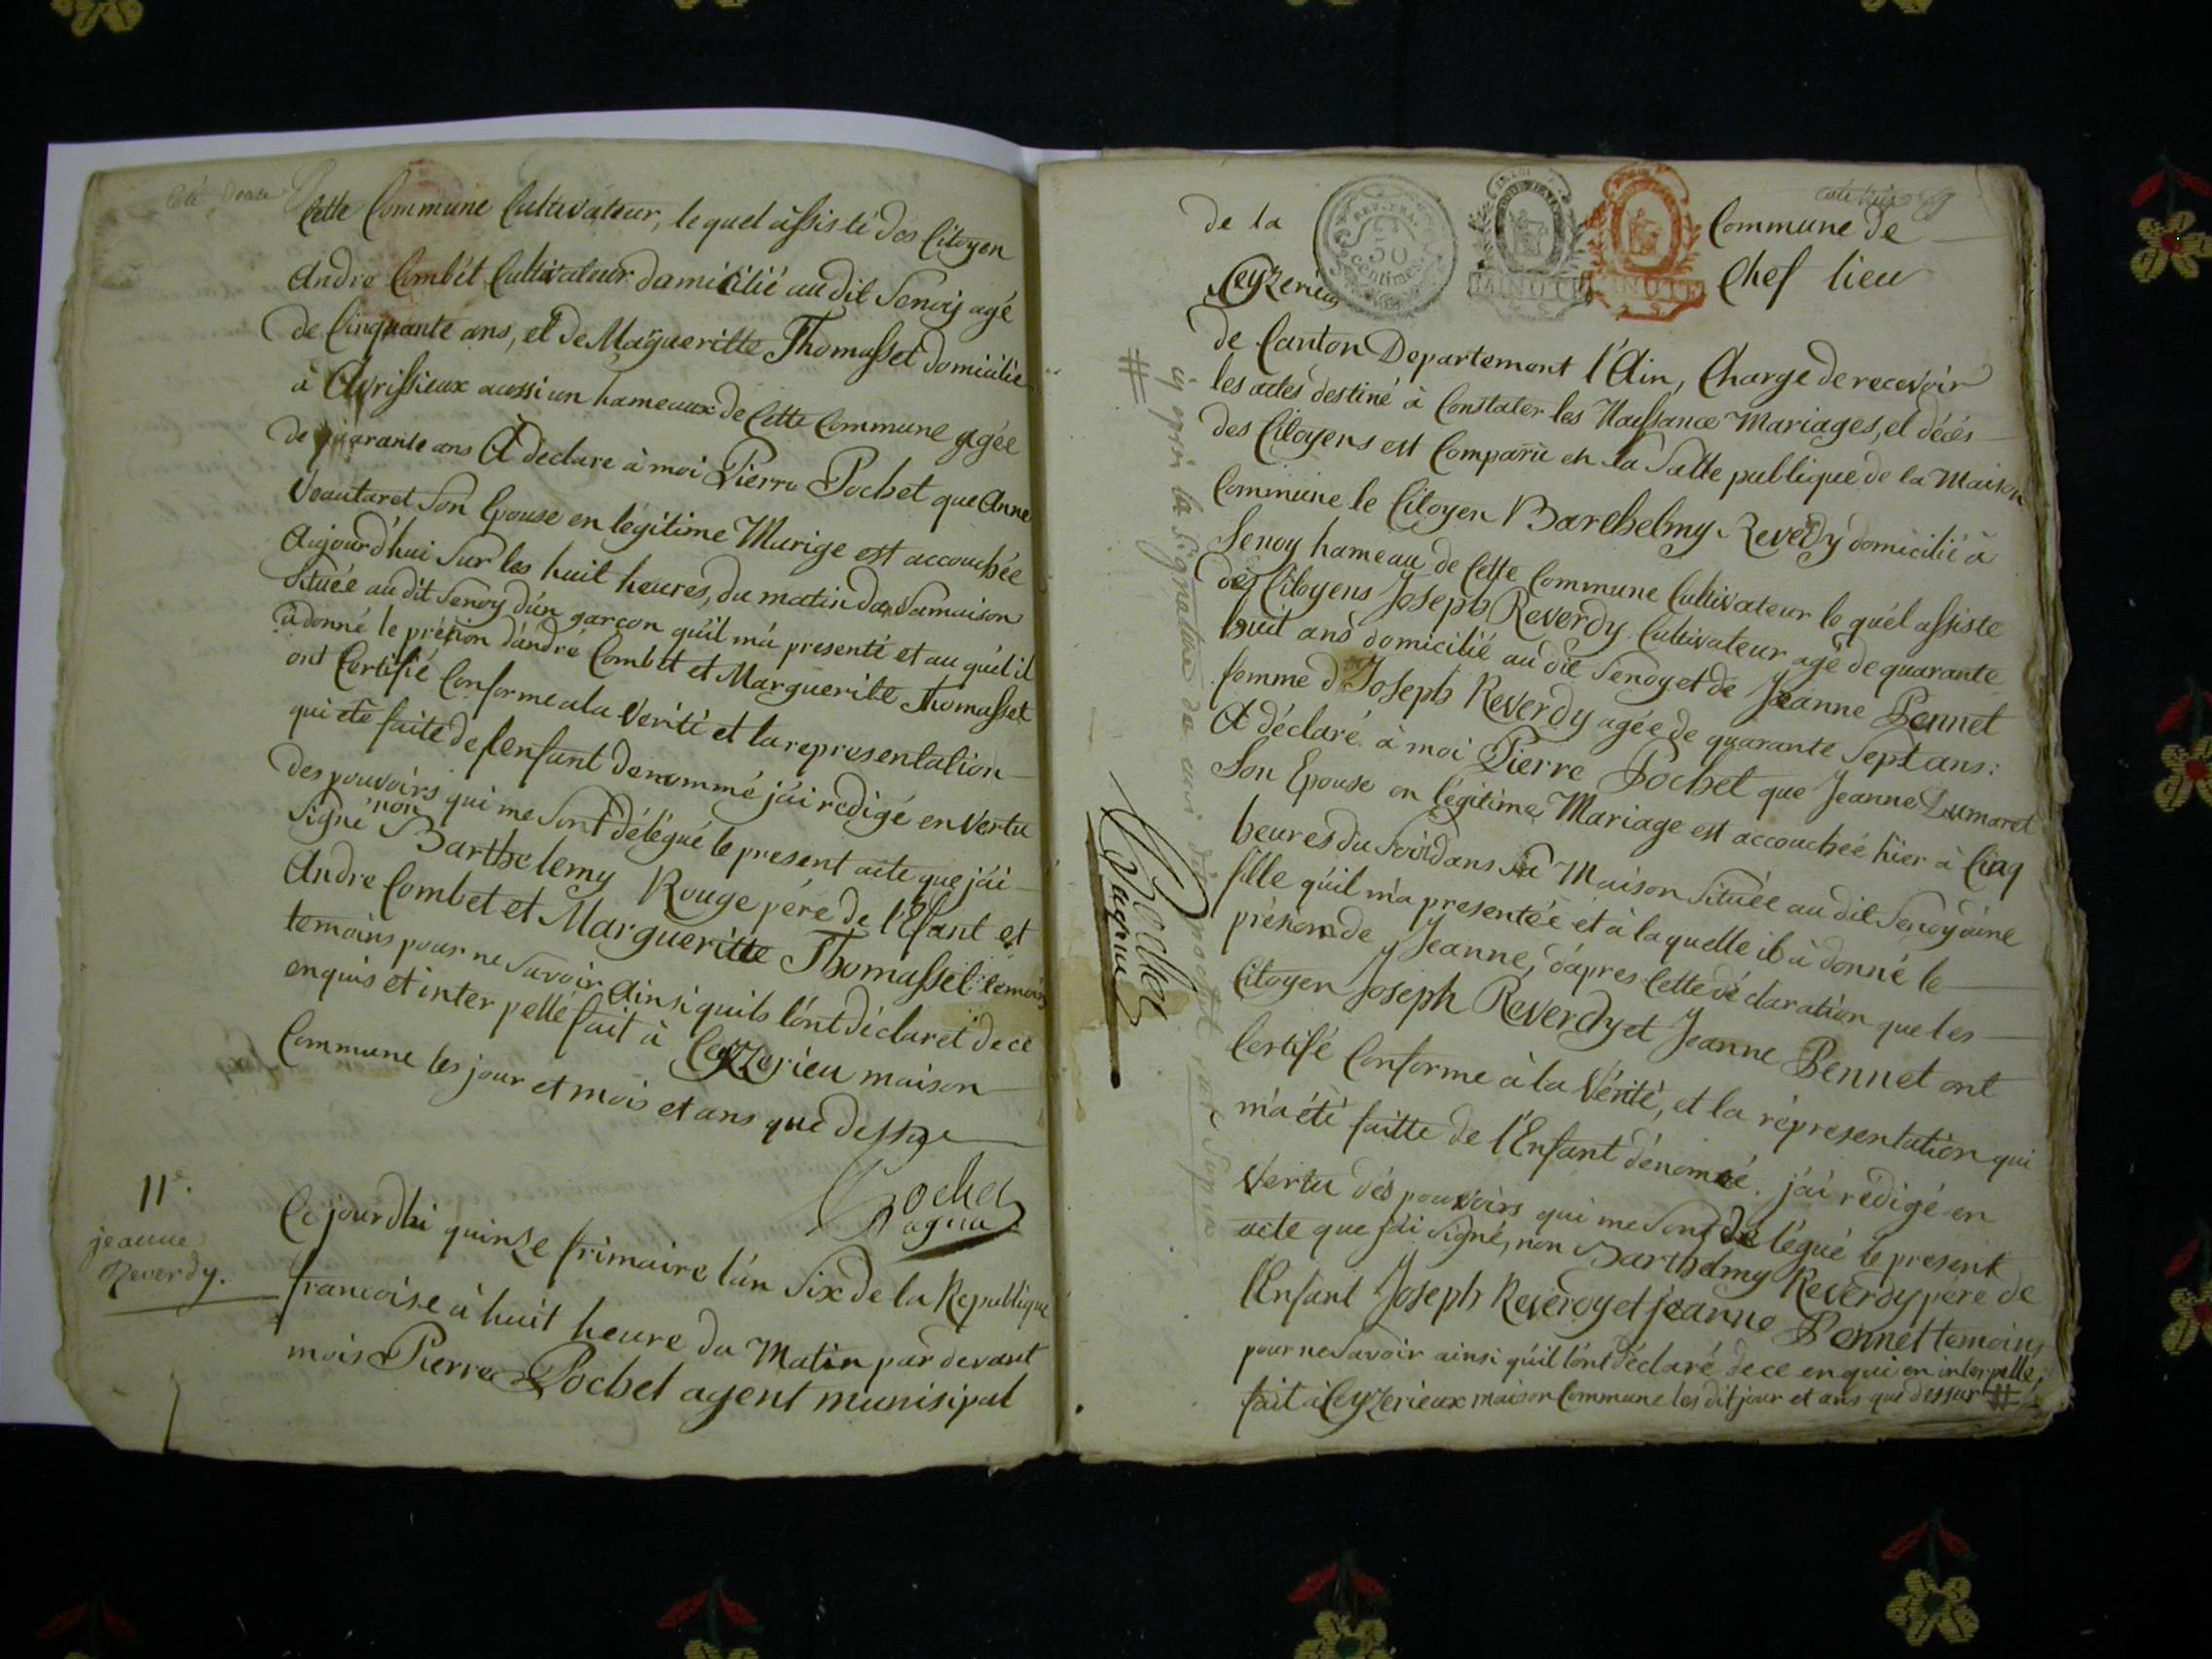 Cette Commune Cultivateur, le quel assisté des Citoyen
Andre Combet Cultivateur domicilié au dit Senoy agé
de Cinquante ans, et de Margueritte Thomasset domicilié
à Avrissieux aussi un hameaux de Cette Commune agée
de quarante ans A declare à moi Pierre Pochet que Anne
Veautaret Son Epouse en legitime Marige est accouchée
Aujourd'hui Sur les huit heures, du matin dans Samaison
Située au dit Senoy d'un garcon quil m'a presenté et au quél il
à donné le prénon d'andré Combet et Marguerite Thomasset
ont Certifié Conforme ala Verité et la representation
qui eté faite de l'enfant denommé j'ai redigé en Vertu
des pouvoirs qui me Sont délégué le present acte que j'ai
Signé non Barthelemy Rouge pére de l'Efant et
Andre Combet et Margueritte Thomasset temoin
temoins pour ne Savoir Ainsi quils l'ont déclaret de ce
enquis et inter pellé fait à Ceyzerieu maison
Commune les jour et mois et ans que dessus
Pochet
agent
11e.
jeanne
Reverdy.
Ce jourdhi quinze frimaire l'an Six de la Republique
francoise à huit heure du Matin par devant
mois Pierre Pochet agent munisipal
de la Commune de
REP. FRA. 50 centimes
MINUTE
MINUTE
Ceyzerieu Chef lieu
de Canton Departement l'Ain, Chargé de recevoir
les actes destiné à Constater les Naissance Mariages, et décés
des Citoyens est Comparu en la Salle publique de la Maison
Commune le Citoyen Barthelmy Reverdy domicilié à
Senoy hameau de Cette Commune Cultivateur le quél assiste
des Citoyens Joseph Reverdy Cultivateur agé de quarante
huit ans domicilié au dit Senoy et de Jeanne Pennet
femme d'Joseph Reverdy agée de quarante Sept ans:
A déclaré à moi Pierre Pochet que Jeanne Dumaret
Son Epouse en légitime Mariage est accouchée hier à Cinq
heures du Soir dans Sa Maison Située au dit Senoy d'une
fille qu'il m'a presentée et à la quelle il à donné le
prénom de Jeanne, d'apres Cette déclaration que les
Citoyen Joseph Reverdy et Jeanne Pennet ont
Certifé Conforme à la Vérité, et la réprésentation qui
m'a été faitte de l'Enfant dénomée. j'ai rédigé en
Vertu dés pouvoirs qui me Sont délégué le present
acte que j'ai Signé, non Barthelmy Reverdy pére de
l'Enfant Joseph Reverdy et jeanne Pennet temoins
pour ne Savoir ainsi qu'il l'ont déclaré de ce enqui en interpellé;
fait à Ceyzerieux maison Commune les dit jour et ans que dessur #
#
la Signature de
Pochet
agent